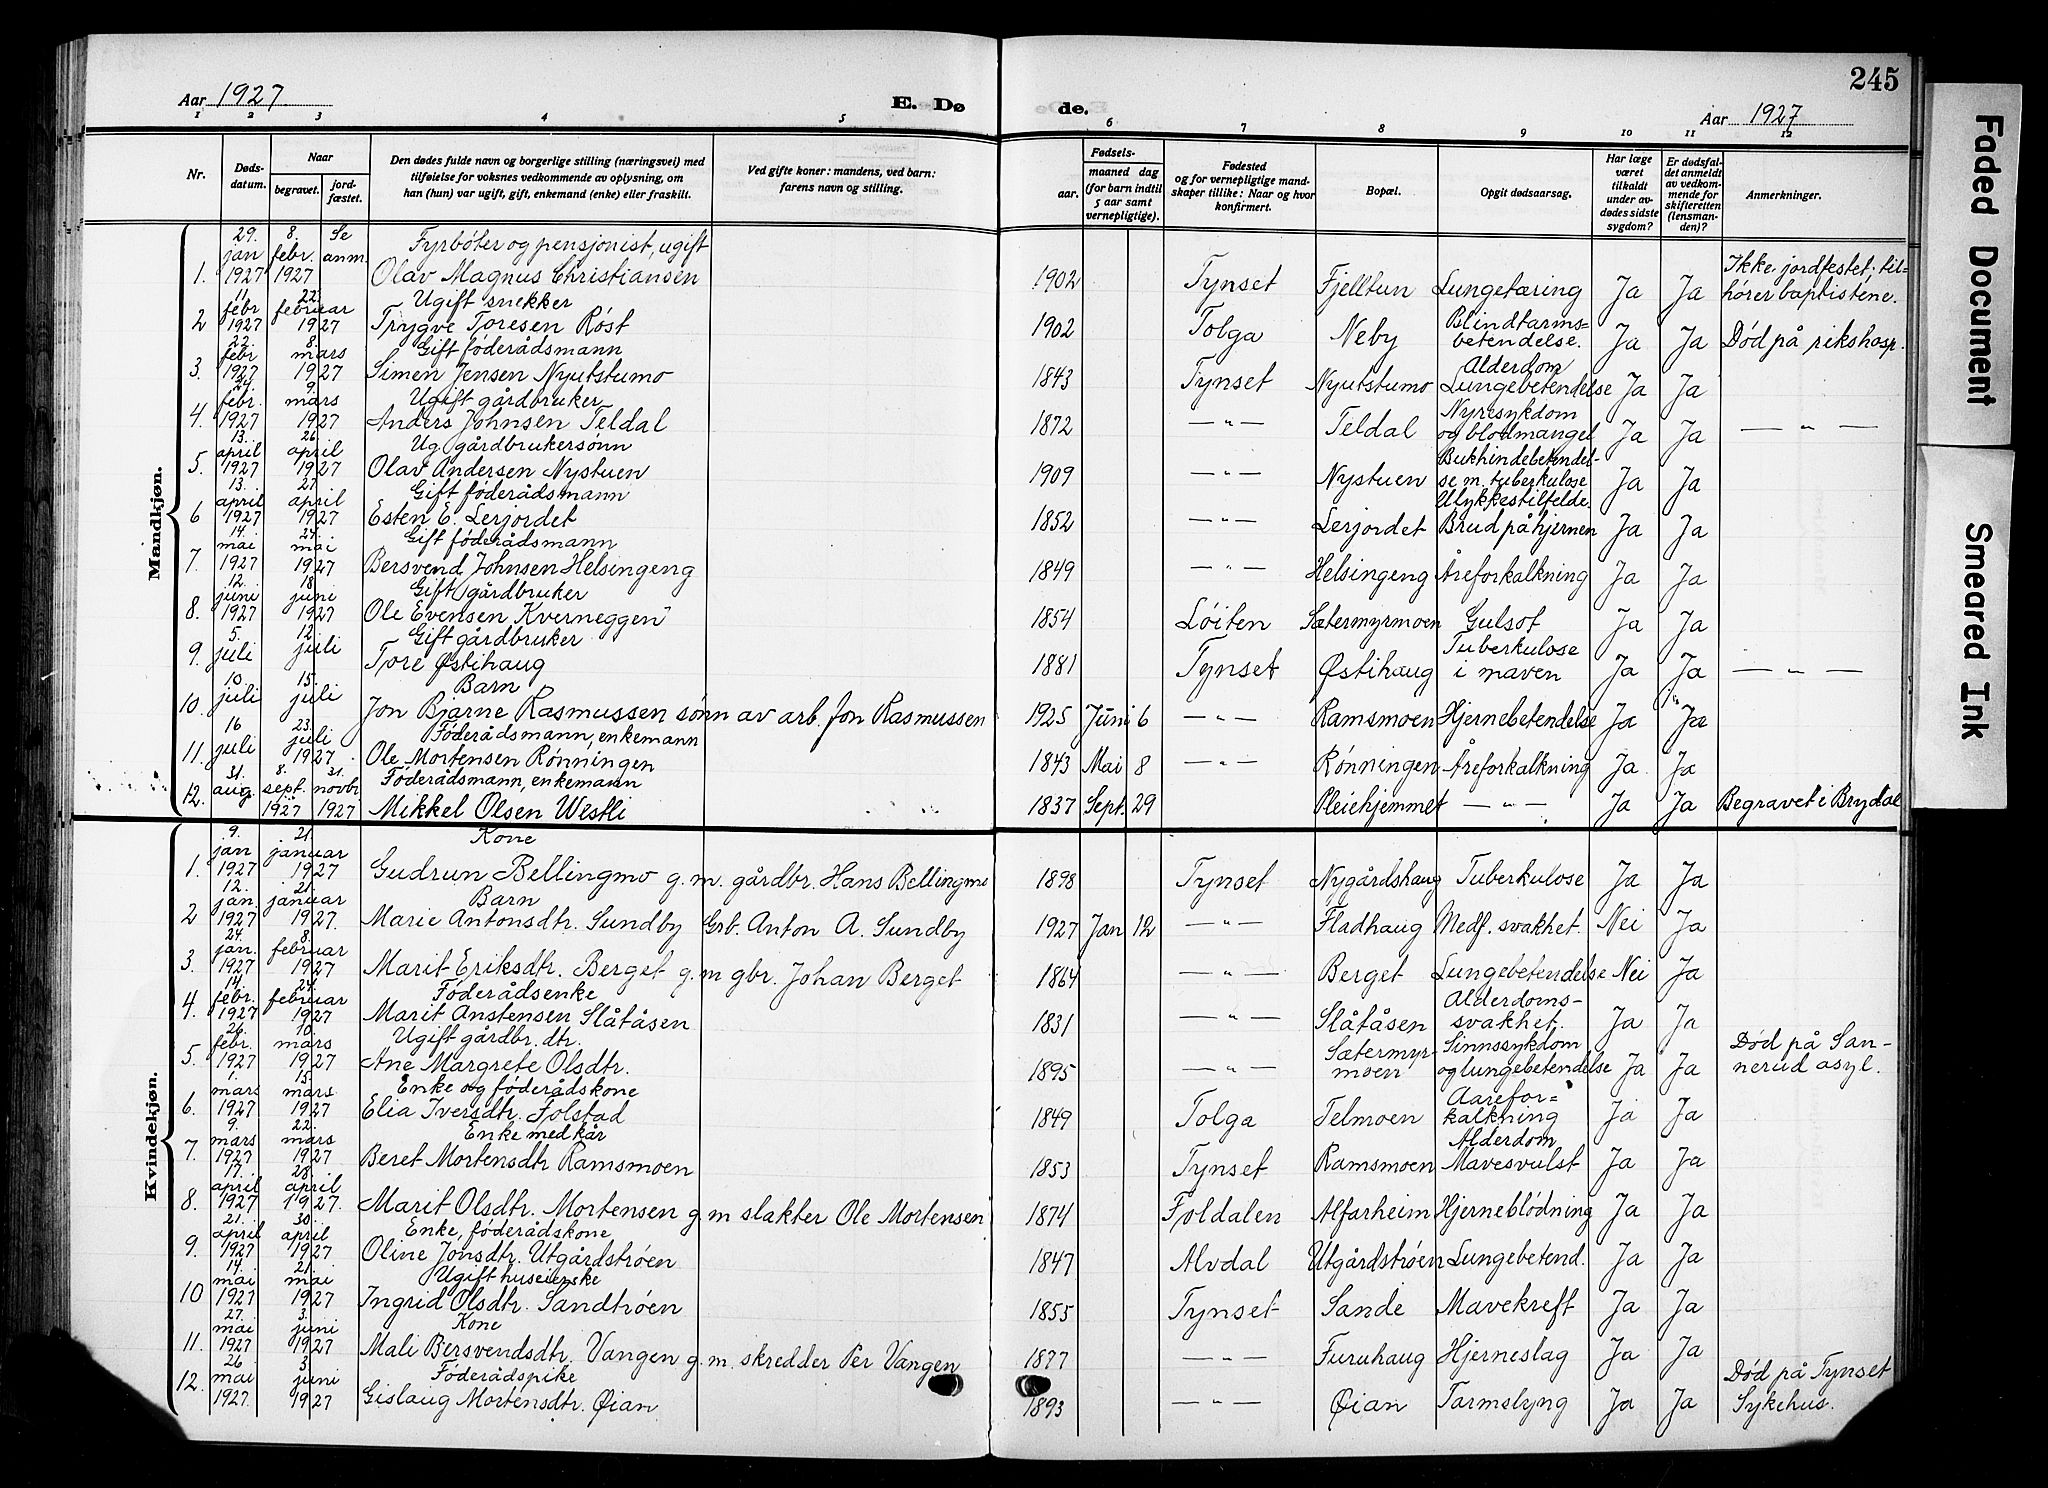 Aar 1927. E. Dø de. Aar 1927 245
1 2 3 4 5 6 7 8 9 10 11 12
Nr. Døds-datum. Naar begravet. jord-fæstet. Den dødes fulde navn og borgerlige stilling (næringsvei) med tilføielse for voksnes vedkommende av oplysning, om han (hun) var ugift, gift, enkemand (enke) eller fraskilt. Ved gifte koner: mandens, ved barn: farens navn og stilling. Fødsels- aar. maaned dag (for barn indtil 5 aar samt vernepligtige). Fødested og for vernepligtige mandskaper tillike: Naar og hvor konfirmert. Bopæl. Opgit dødsaarsag. Har læge været tilkaldt under avdødes sidste sygdom? Er dødsfaldet anmeldt av vedkommende for skifteretten (lensmanden)? Anmerkninger.
Mandkjøn.
1. 29. jan 1927 8. febr. 1927 Se anm. Fyrbøter og pensjonist, ugift Olav Magnus Christiansen 1902 Tynset Fjelltun Lungetæring Ja Ja Ikke jordfestet; tilhører baptistene.
2 11. febr 1927 22. februar 1927 Ugift snekker Trygve Toresen Røst 1902 Tolga Neby Blindtarms=betendelse. Ja Ja Død på rikshosp.
3. 22. febr 1927 8. mars 1927 Gift føderådsmann Simen Jensen Nyutstumo 1843 Tynset Nyutstumo Alderdom Lungebetendelse Ja Ja
4. 24. febr. 1927 9. mars 1927 Ugift gårdbruker Anders Johnsen Teldal 1872 — " — Teldal Nyresykdom og blodmangel Ja Ja — " —
5. 13. april 1927 26. april 1927 Ug. gårdbrukersønn Olav Andersen Nystuen 1909 — " — Nystuen Bukhindebetendelse m. tuberkulose Ja Ja
6 13. april 1927 27. april 1927 Gift føderådsmann Esten E. Lerjordet 1852 — " — Lerjordet Ulykkestilfelde. Brud på hjernen Ja Ja
7. 14. mai 1927 24. mai 1927 Gift føderådsmann Bersvend Johnsen Helsingeng 1849 — " — Helsingeng Åreforkalkning Ja Ja
8. 12. juni 1927 18. juni 1927 Gift gårdbruker Ole Evensen Kverneggen 1854 Løiten Sætermyrmoen Gulsot Ja Ja
9. 5. juli 12. juli Gift gårdbruker Tore Østihaug 1881 Tynset Østihaug Tuberkulose i maven Ja Ja — " —
10. 10. juli 15. juli Barn Jon Bjarne Rasmussen sønn av arb. Jon Rasmussen 1925 Juni 6 — " — Ramsmoen Hjernebetendelse Ja Ja
11. 16 juli 23. juli 1927. Føderådsmann, enkemann Ole Mortensen Rønningen 1843 Mai 8 — " — Rønningen Åreforkalkning Ja Ja
12. 31. aug. 8. sept. 1927 31. novbr 1927 Føderådsmann, enkemann Mikkel Olsen Westli 1837 Sept. 29 Pleiehjemmet — " — Ja Ja Begravet i Brydal
Kvindekjøn.
1. 9. jan 1927 21. januar 1927 Kone Gudrun Bellingmo g.m. gårdbr. Hans Bellingmo 1898 Tynset Nygårdshaug Tuberkulose Ja Ja
2 12. jan. 1927 21. januar 1927. Barn Marie Antonsdtr. Sundby Grb. Anton A. Sundby 1927 Jan 12 — " — Fladhaug Medf. svakhet. Nei Ja
3. 24. jan. 1927 8. februar 1927 Marit Eriksdtr. Berget g.m gbr. Johan Berget 1864 — " — Berget Lungebetendelse Nei Ja
4. 14. febr. 1927 24. februar 1927 Føderådsenke Marit Anstensen Slåtåsen 1831 — " — Slåtåsen Alderdoms-svakhet. Ja Ja
5. 26. febr. 1927 10. mars 1927 Ugift gårdbr. dtr. Ane Margrete Olsdtr. 1895 Sætermyrmoen Sinnssykdom og lungebetendelse Ja Ja Død på Sannerud asyl.
6. 1. mars 1927 15. mars 1927 Enke og føderådskone Elia Iversdtr. Folstad 1849 Tolga Telmoen Aarefor=kalkning Ja Ja
7. 9. mars 1927 22. mars 1927 Enke med kår Beret Mortensdtr Ramsmoen 1853 Tynset Ramsmoen Alderdom Mavesvulst Ja Ja
8. 17. april 1927 28. april 1927. Marit Olsdtr. Mortensen g.m slakter Ole Mortensen 1874 Foldalen Alfarheim Hjerneblødning Ja Ja
9. 21. april 1927 30. april 1927 Enke, føderådskone Oline Jonsdtr. Utgårdstrøen 1847 Alvdal Utgårdstrøen Lungebetend. Ja Ja
10 14. mai 1927 21. mai 1927 Ugift huseierske Ingrid Olsdtr. Sandtrøen 1855 Tynset Sande Mavekreft Ja Ja
11. 27. mai 1927 3. juni 1927 Kone Mali Bersvendsdtr. Vangen g.m. skredder Per Vangen 1877 — " — Furuhaug Hjerneslag Ja Ja
12. 26 mai 1927. 3 juni 1927 Føderådspike Gislaug Mortensdtr. Øian 1893 — " — Øian Tarmslyng Ja Ja Død på Tynset Sykehus.
Faded Document
Smeared Ink